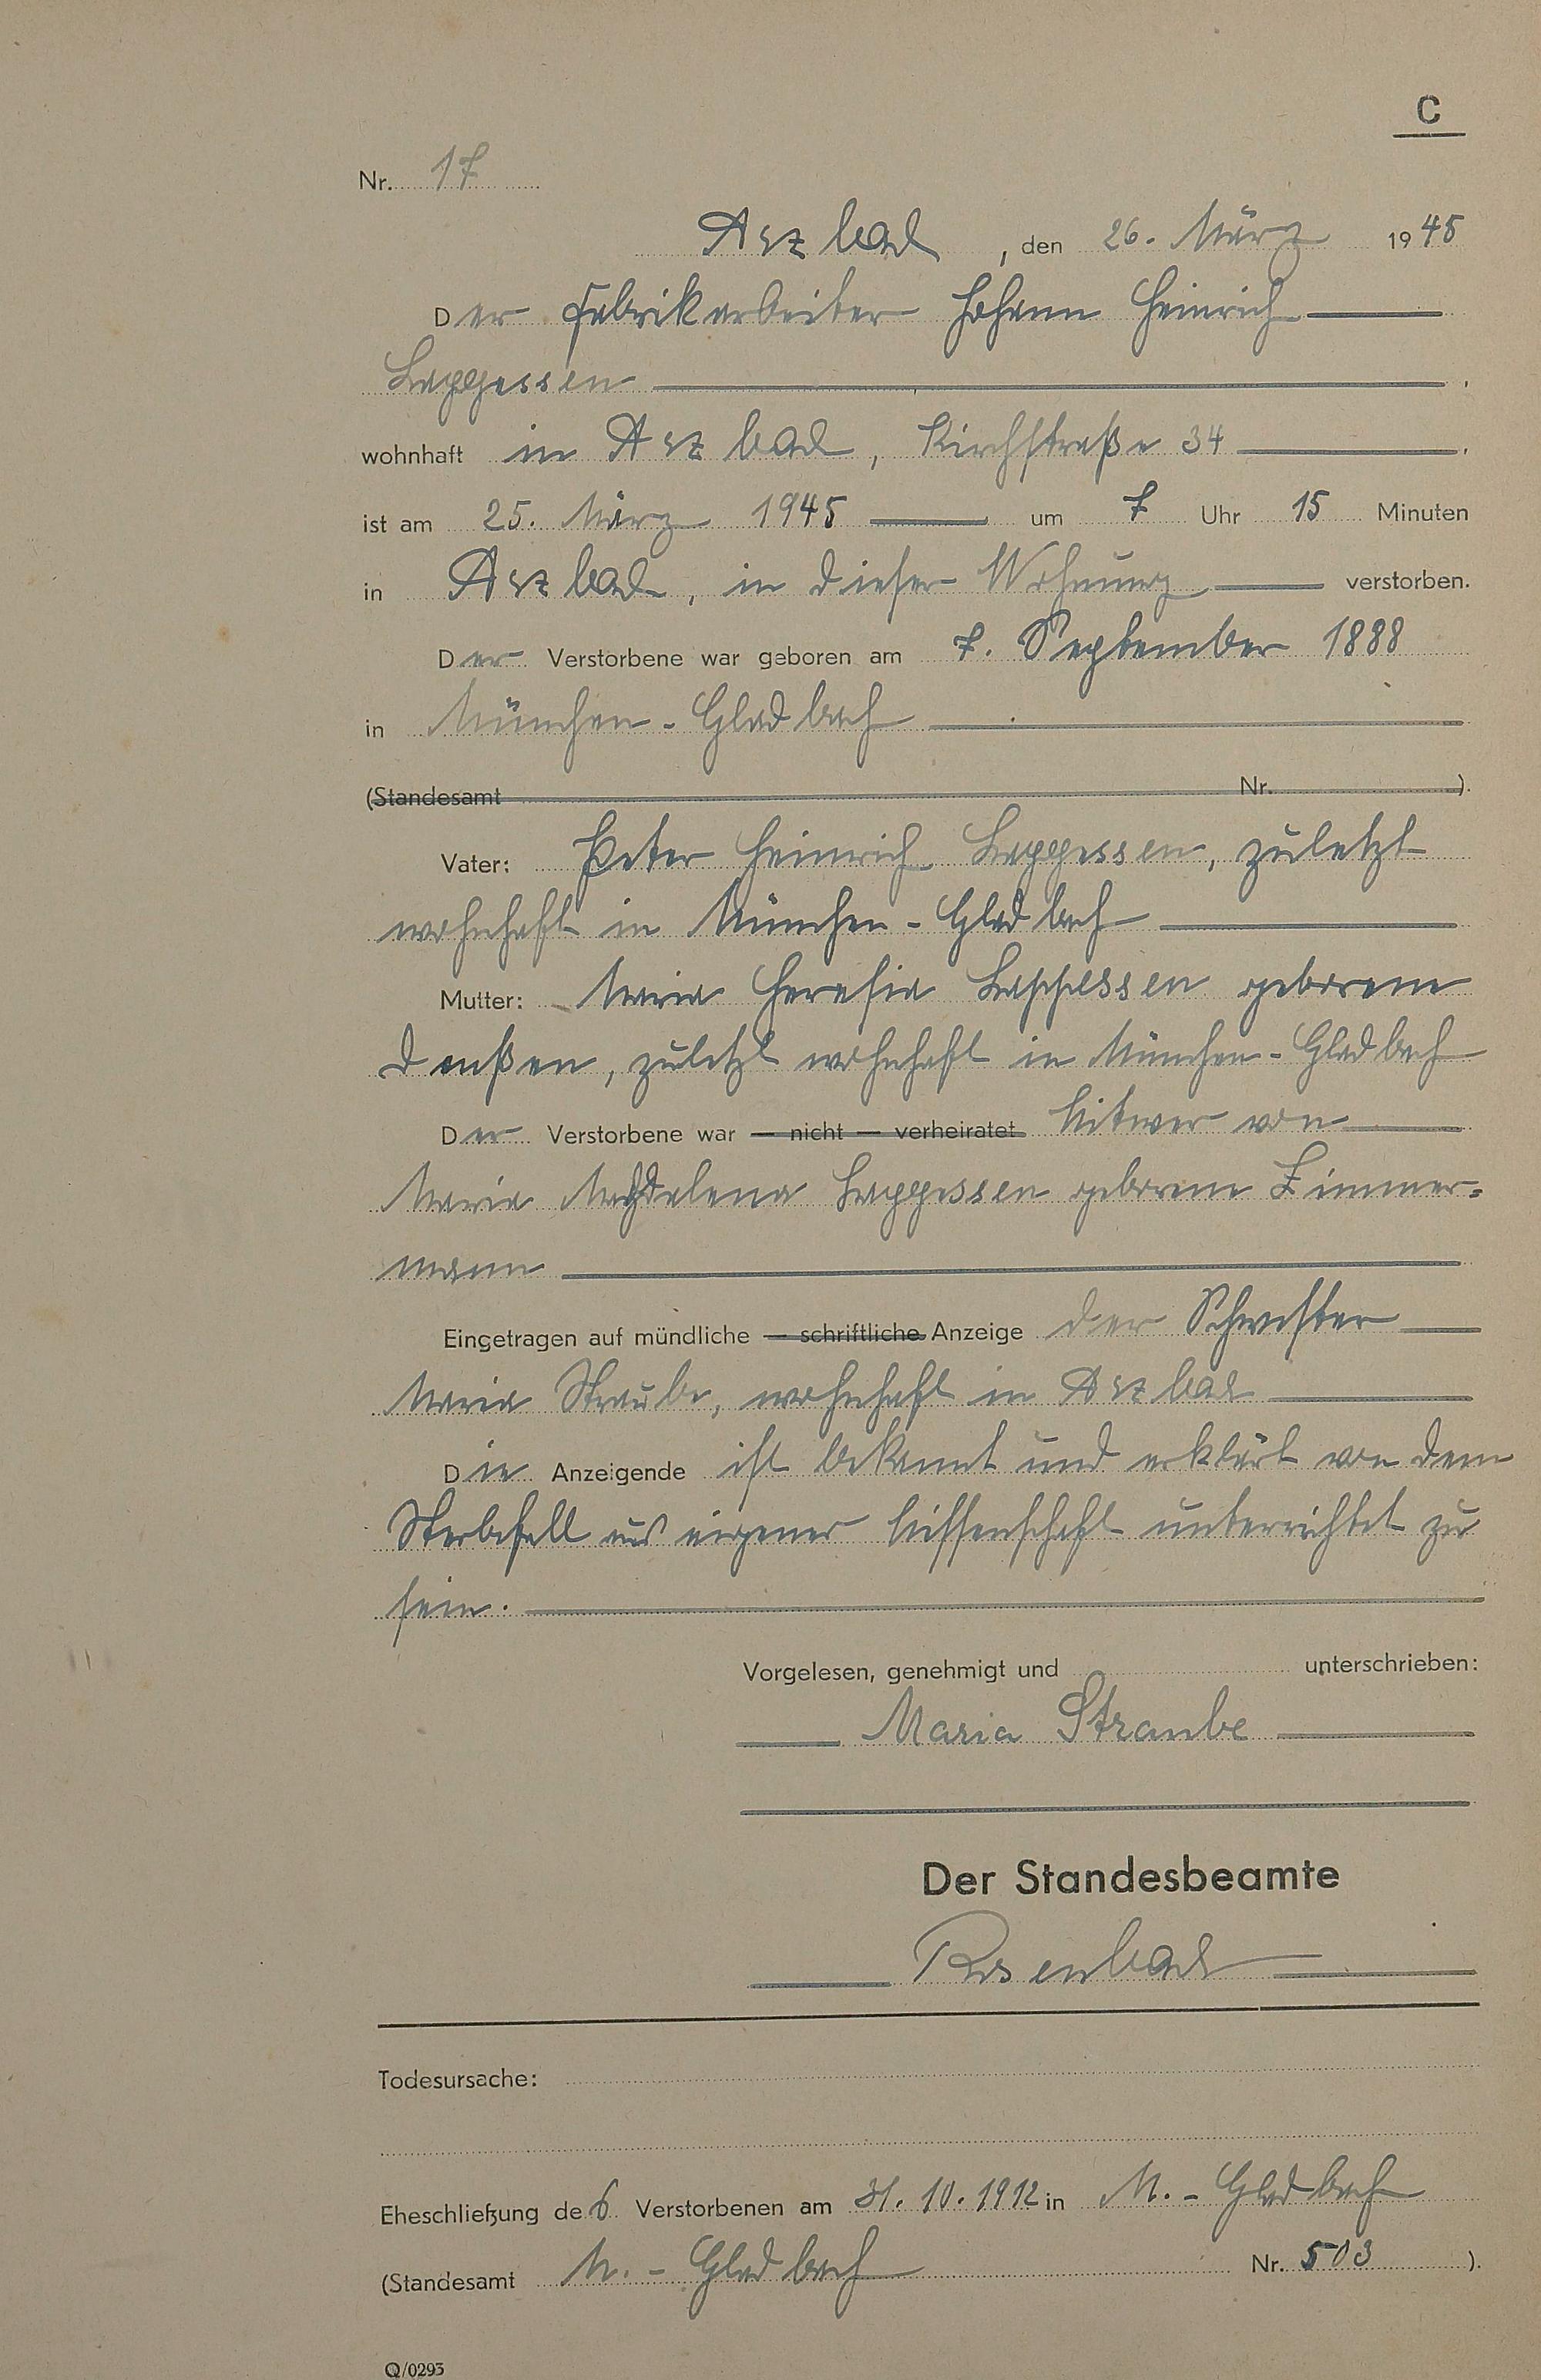 C
Nr. 17
Arzbach, den 26. März 1945
Der Fabrikarbeiter Johann Heinrich
Lappessen
wohnhaft in Arzbach, Kirchstraße 34
ist am 25. März 1945 um 7 Uhr 15 Minuten
in Arzbach, in dieser Wohnung verstorben.
Der Verstorbene war geboren am 7. September 1888
in München-Gladbach
(Standesamt Nr. ).
Vater: Peter Heinrich Lappessen, zuletzt
wohnhaft in München-Gladbach
Mutter: Maria Theresia Lappessen geborene
zuletzt wohnhaft in München-Gladbach
Der Verstorbene war — nicht — verheiratet Witwer von
Maria Magdalena Lappessen geborene Zimmer=
mann
Eingetragen auf mündliche — schriftliche Anzeige der Schwester
Maria Straube, wohnhaft in Arzbach
Die Anzeigende ist bekannt und erklärt von dem
Sterbefall aus eigener Wissenschaft unterrichtet zu
sein.
Vorgelesen, genehmigt und unterschrieben:
Maria Straube
Der Standesbeamte
Rosenbach
Todesursache:
Eheschließung des Verstorbenen am 31.10.1912 in M.-Gladbach
(Standesamt M.-Gladbach Nr. 503 ).
Q/0293